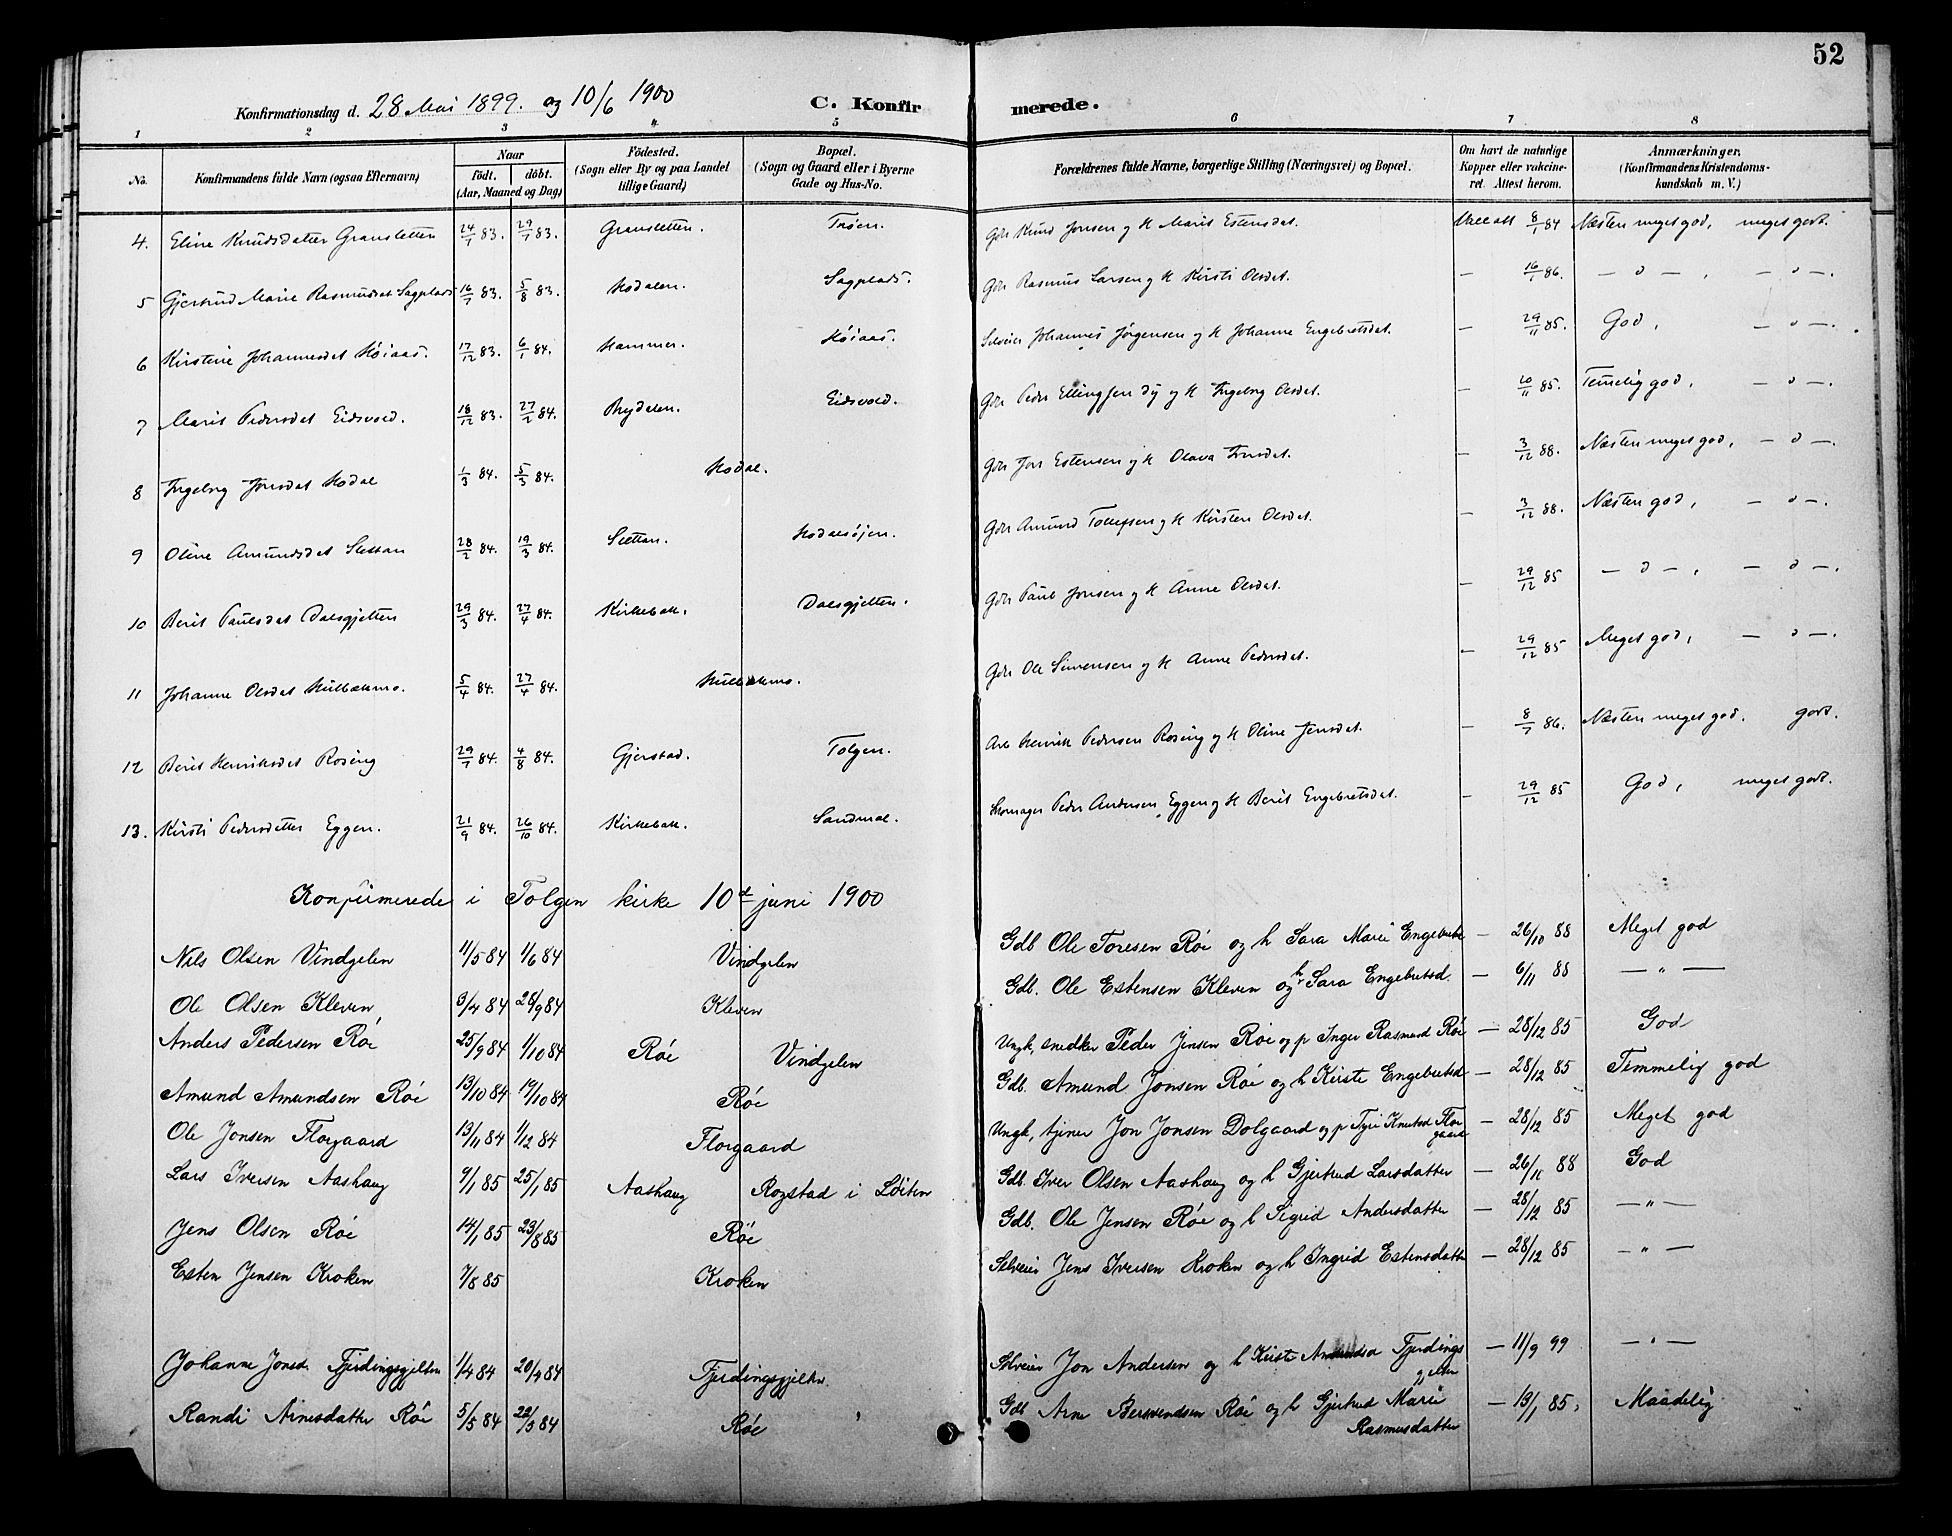 52
Konfirmationsdag d. 28 Mai 1899. og 10/6 1900 C. Konfirmerede.
1 2 3 4 5 6 7 8
No. Konfirmandens fulde Navn (ogsaa Efternavn) Naar födt. döbt. (Aar, Maaned og Dag) Födested. (Sogn eller By og paa Landet tillige Gaard) Bopæl. (Sogn og Gaard eller i Byerne Gade og Hus-No. Forældrenes fulde Navne, borgerlige Stilling (Næringsvei) og Bopæl. Om havt de naturlige Kopper eller vakcineret. Attest herom. Anmærkninger. (Konfirmandens Kristendomskundskab m. V.)
4. Eline Knudsdatter Gransletten 24/7 83. 29/7 83. Gransletten. Trøen. Gdr Knud Jonsen og H Marit Estensdat. 8/1 84 Næsten meget god, meget godt.
5 Gjertrud Marie Rasmusdat Sagplads 16/7 83. 5/8 83. Hodalen. Sagplads. Gdr Rasmus Larsen og H Kirsti Olsdat. — 16/1 86. — " — , — " — .
6 Kirstine Johannesdat Høiaas. 17/12 83. 6/1 84. Hammer. Høiaas. Selveier Johannes Jørgensen og H Johanne Engebretsdat. — 29/11 85. God, — " — .
7 Marit Pedersdat Eidsvold. 18/12 83. 27/2 84. Brydalen. Eidsvold. Gdr Peder Ellingsen Øy og H Ingebrg Olsdat. — 20/11 85. Temelig god, — " — .
8 Ingebrg Jonsdat Hodal 1/3 84. 5/3 84. Hodal. Gdr Jon Estensen og H Olava Jonsdat. — 3/12 88. Næsten meget god, — " — .
9 Oline Amundsdat Slettan 28/2 84. 19/3 84. Slettan. Hodalsøien. Gdr Amund Tollefsen og H Kirsten Olsdat. — 3/12 88. Næsten god, — " — .
10 Berit Paulsdat Dalsgjetten 29/3 84. 27/4 84. Kirkebak. Dalsgjetten. Gdr Paul Jonsen og H Anne Olsdat. — 29/12 85 — " — , — " — .
11 Johanne Olsdat Hulbækmo. 5/4 84. 27/4 84. Hulbækmo. Gdr Ole Simensen og H Anne Pedersdat. — 29/12 85 Meget god, — " — .
12 Berit Henriksdat Rosing 29/7 84. 4/8 84. Gjerstad. Tolgen. Arb Henrik Pedersen Rosing og H Oline Jensdat. — 8/7 86. Næsten meget god. godt.
13. Kirsti Pedersdatter Eggen. 21/9 84. 26/10 84. Kirkebak. Sandmæl. Skomager Peder Andersen Eggen og H Berit Engebretsdat. — 29/12 85 God, meget godt.
Konfirmerede i Tolgen kirke 10d juni 1900
Nils Olsen Vindgelen 11/5 84 1/6 84 Vindgelen Gdb Ole Toresen Røe og h Sara Marie Engebretsd — 26/10 88 Meget god
Ole Olsen Kleven 3/4 84 28/9 84 Kleven Gdb. Ole Estensen Kleven og h Sara Engebretsd. — 6/11 88 — " —
Anders Pedersen Røe 25/9 84 1/10 84 Røe Vindgelen Ungk, snedker Peder Jensen Røe og p Inger Rasmusd Røe — 28/12 85 God
Amund Amundsen Røe 13/10 84 19/10 84 Røe Gdb. Amund Jonsen Røe og h Kirste Engebretsd — 28/12 85 Temmelig god
Ole Jonsen Florgaard 13/11 84 1/12 84 Florgaard Ungk, tjener Jon Jonsen Dolgaard og p Tyri Knutsd Florgaard — 28/12 85 Meget god
Lars Iversen Aashaug 9/1 85 25/1 85 Aashaug Rogstad i Løiten Gdb. Iver Olsen Aashaug og h Gjertrud Larsdatter — 26/11 88 God
Jens Olsen Røe 14/1 85 23/8 85 Røe Gdb. Ole Jensen Røe og h Sigrid Andersdatter — 28/12 85 — " —
Esten Jensen Kroken 7/8 85 Kroken Selveier Jens Iversen Kroken og h Ingrid Estensdatter — 28/12 85 — " —
Johanne Jonsd. Fjerdingsgjelten 1/4 84 20/4 84 Fjerdingsgjelten Selveier Jon Andersen og h Kirste Amundsd Fjerdingsgjelten — 11/9 99 — " —
Randi Arnesdatter Røe 5/5 84 22/3 84 Røe Gdb Arne Bersvendsen Røe og h Gjertrud Marie Rasmusdatter — 13/1 85. Maadelig